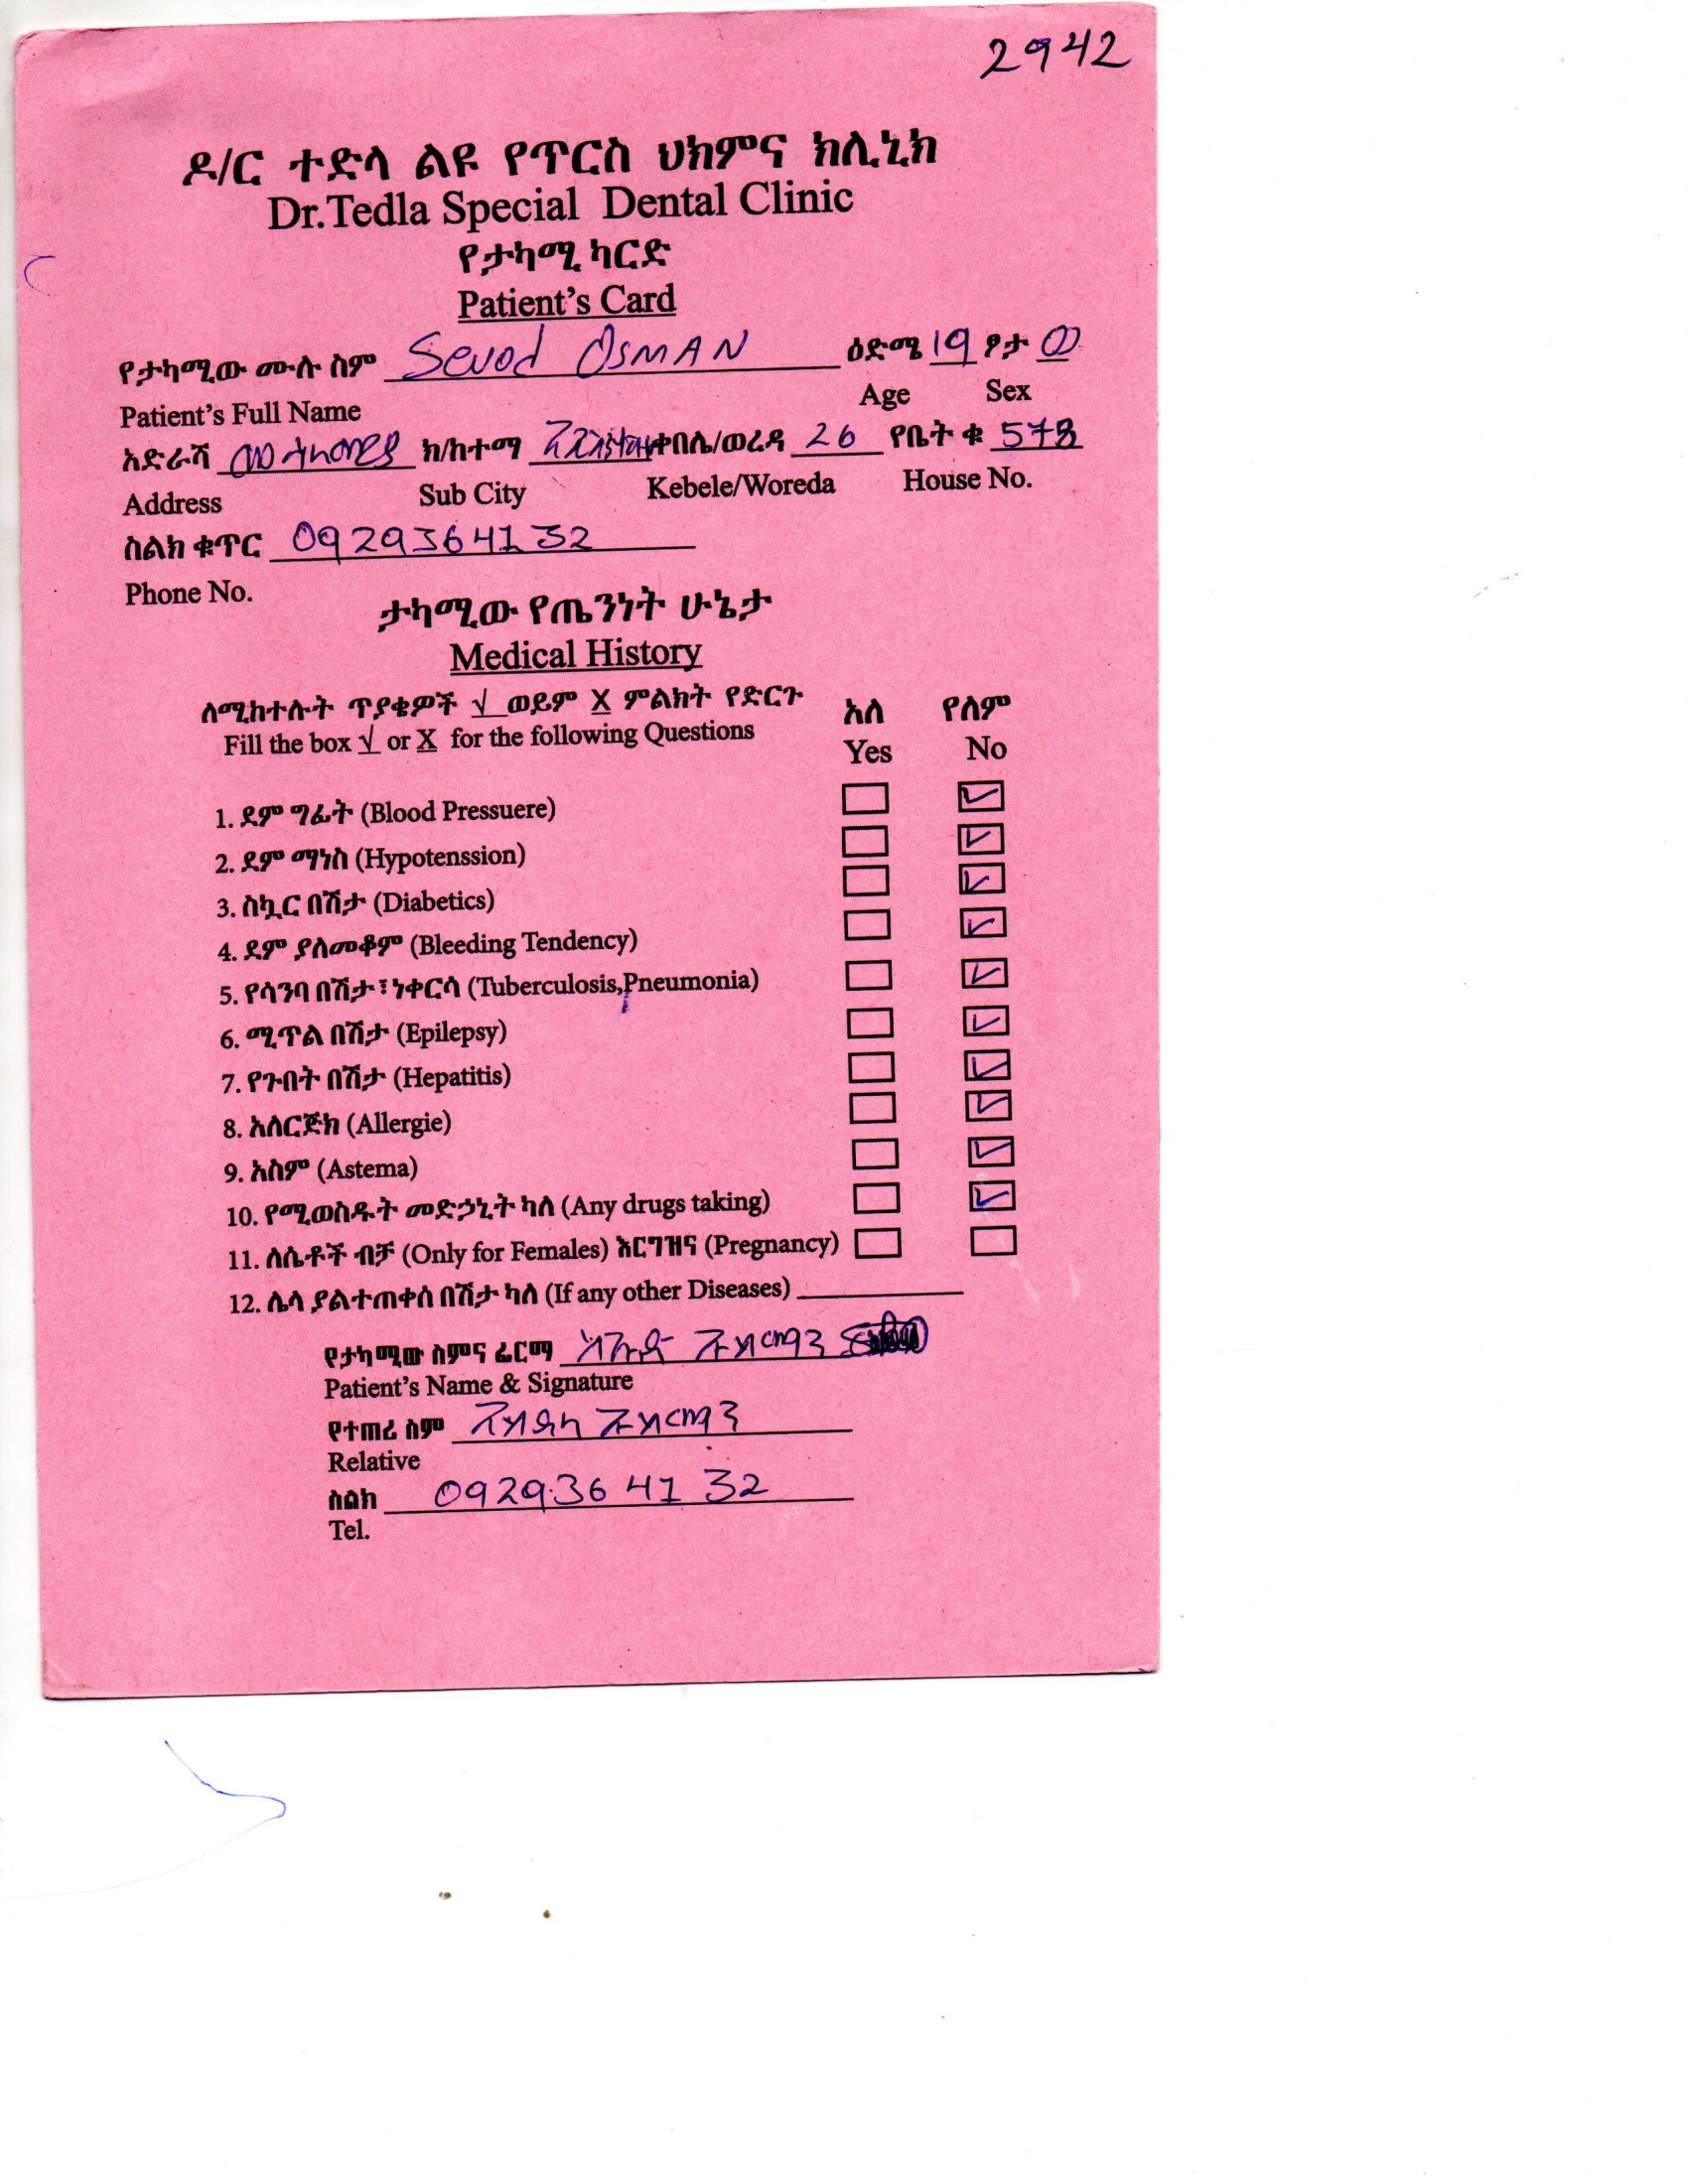 2942
ዶ/ር ተድላ ልዩ የጥርስ ህክምና ክሊኒክ
Dr.Tedla Special Dental Clinic
የታካሚ ካርድ
Patient's Card
የታካሚው ሙሉ ስም Seuod OSMAN ዕድሜ 19 ፆታ ወ
Patient's Full Name Age Sex
አድራሻ ክ/ከተማ ቀበሌ/ወረዳ 26 የቤት ቁ 578
Address Sub City Kebele/Woreda House No.
ስልክ ቁጥር 0929364132
Phone No.
ታካሚው የጤንነት ሁኔታ
Medical History
ለሚከተሉት ጥያቄዎች √ ወይም X ምልክት የድርጉ አለ የለም
Fill the box √ or X for the following Questions Yes No
1. ደም ግፊት (Blood Pressuere)
2. ደም ማነስ (Hypotenssion)
3. ስኳር በሽታ (Diabetics)
4. ደም ያለመቆም (Bleeding Tendency)
5. የሳንባ በሽታ፣ነቀርሳ (Tuberculosis,Pneumonia)
6. ሚጥል በሽታ (Epilepsy)
7. የጉበት በሽታ (Hepatitis)
8. አለርጅክ (Allergie)
9. አስም (Astema)
10. የሚወስዱት መድኃኒት ካለ (Any drugs taking)
11. ለሴቶች ብቻ (Only for Females) እርግዝና (Pregnancy)
12. ሌላ ያልተጠቀሰ በሽታ ካለ (If any other Diseases)
የታካሚው ስምና ፊርማ
Patient's Name & Signature
የተጠሪ ስም
Relative
ስልክ 0929364132
Tel.